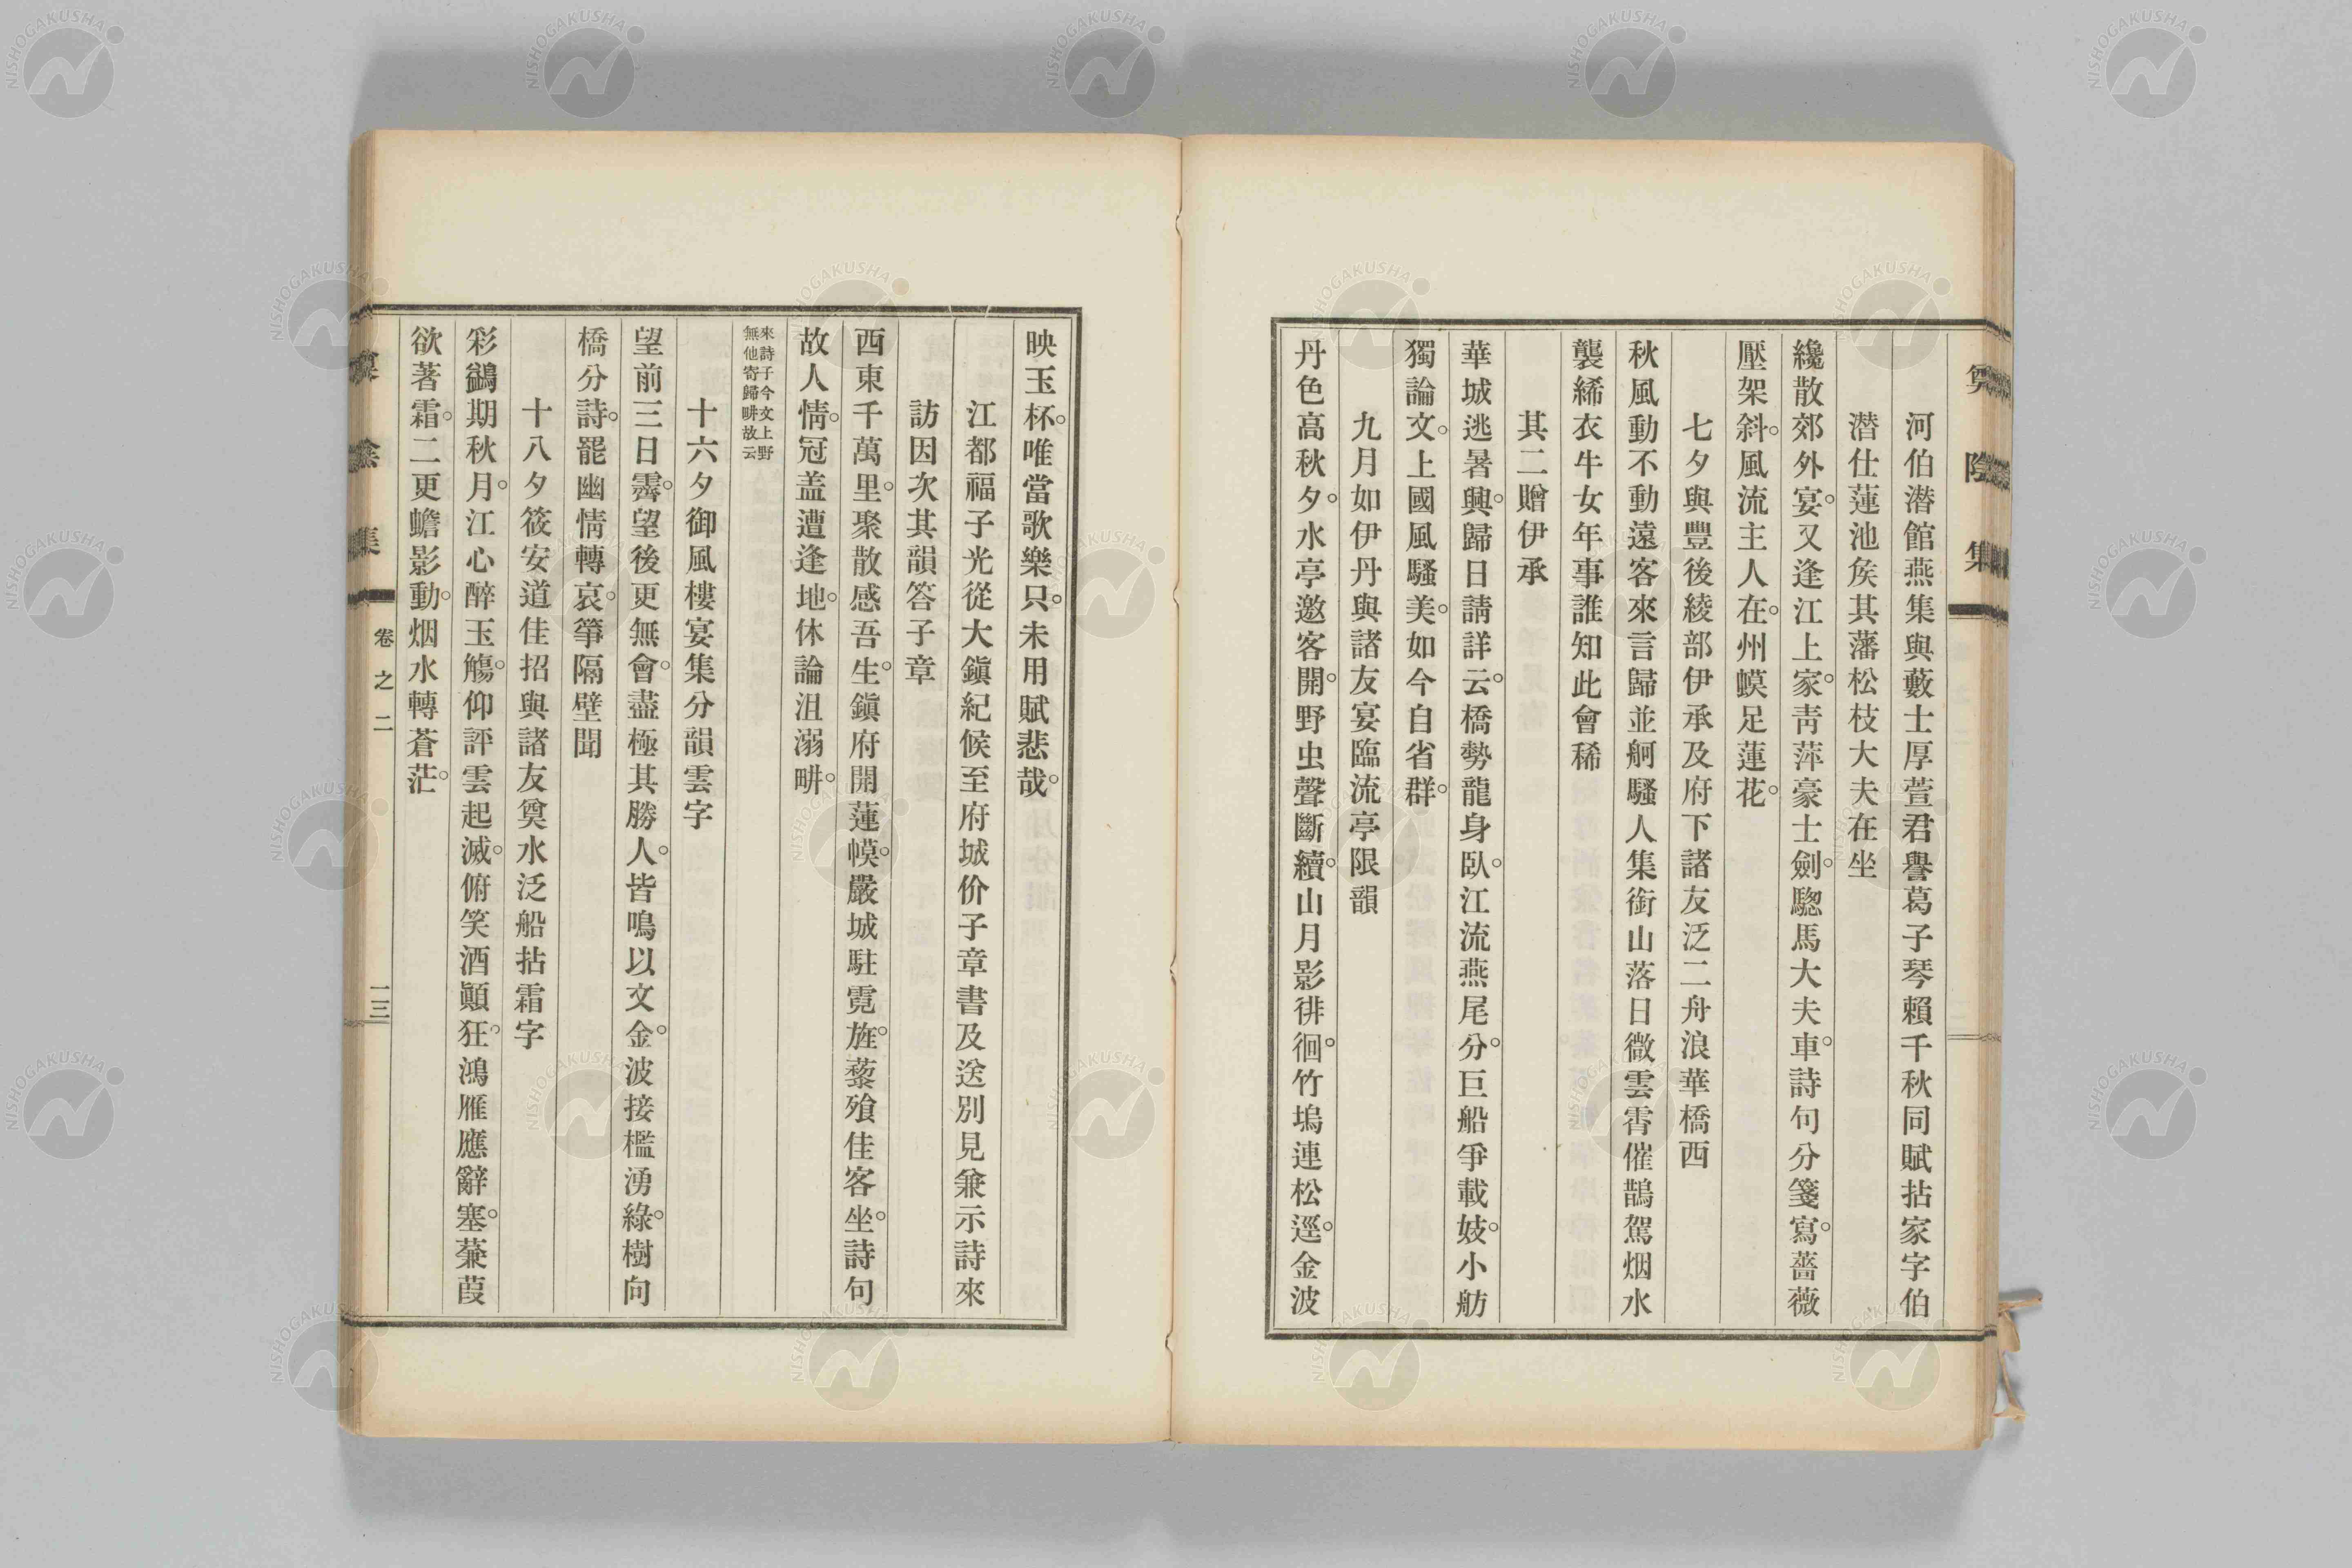 河伯潜館燕集與藪士厚萱君譽葛子琴賴千秋同賦拈家字伯
潜仕蓮池矦其藩松枝大夫在坐
纔散郊外宴。又逢江上家。靑萍豪士劍。驄馬大夫車。詩句分箋寫。薔薇
壓架斜。風流主人在。州蟆足蓮花。
七夕與豐後綾部伊承及府下諸友泛二舟浪華橋西
秋風動不動遠客來言歸並舸騷人集銜山落日微雲霄催鵲駕烟水
襲絺衣牛女年事誰知此會稀
其二贈伊承
華城逃暑興。歸日請詳云。橋勢龍身臥。江流燕尾分。巨船爭載妓。小舫
獨論文。上國風騷美。如今自省群。
九月如伊丹與諸友宴臨流亭限韻
丹色高秋夕。水亭邀客開。野虫聲斷續。山月影徘徊。竹塢連松逕。金波
映玉杯。唯當歌樂只。未用賦悲哉。
江都福子光從大鎭紀候至府城价子章書及送別見兼示詩來
訪因次其韻答子章
西東千萬里。聚散感吾生。鎭府開蓮幙。嚴城駐霓旌。藜飡佳客坐。詩句
故人情。冠盖遭逢地。休論沮溺畊。
來詩子今文上野
無他寄歸畊故云
十六夕御風樓宴集分韻雲字
望前三日霽。望後更無會。盡極其勝人。皆鳴以文金。波接檻湧綠。樹向
橋分詩。罷幽情轉哀。箏隔壁聞
十八夕筱安道佳招與諸友奠水泛船拈霜字
彩鷁期秋月。江心醉玉觴。仰評雲起滅。俯笑酒顚狂。鴻雁應辭塞。蒹葭
欲著霜。二更蟾影動。烟水轉蒼茫。
卷之二
一三